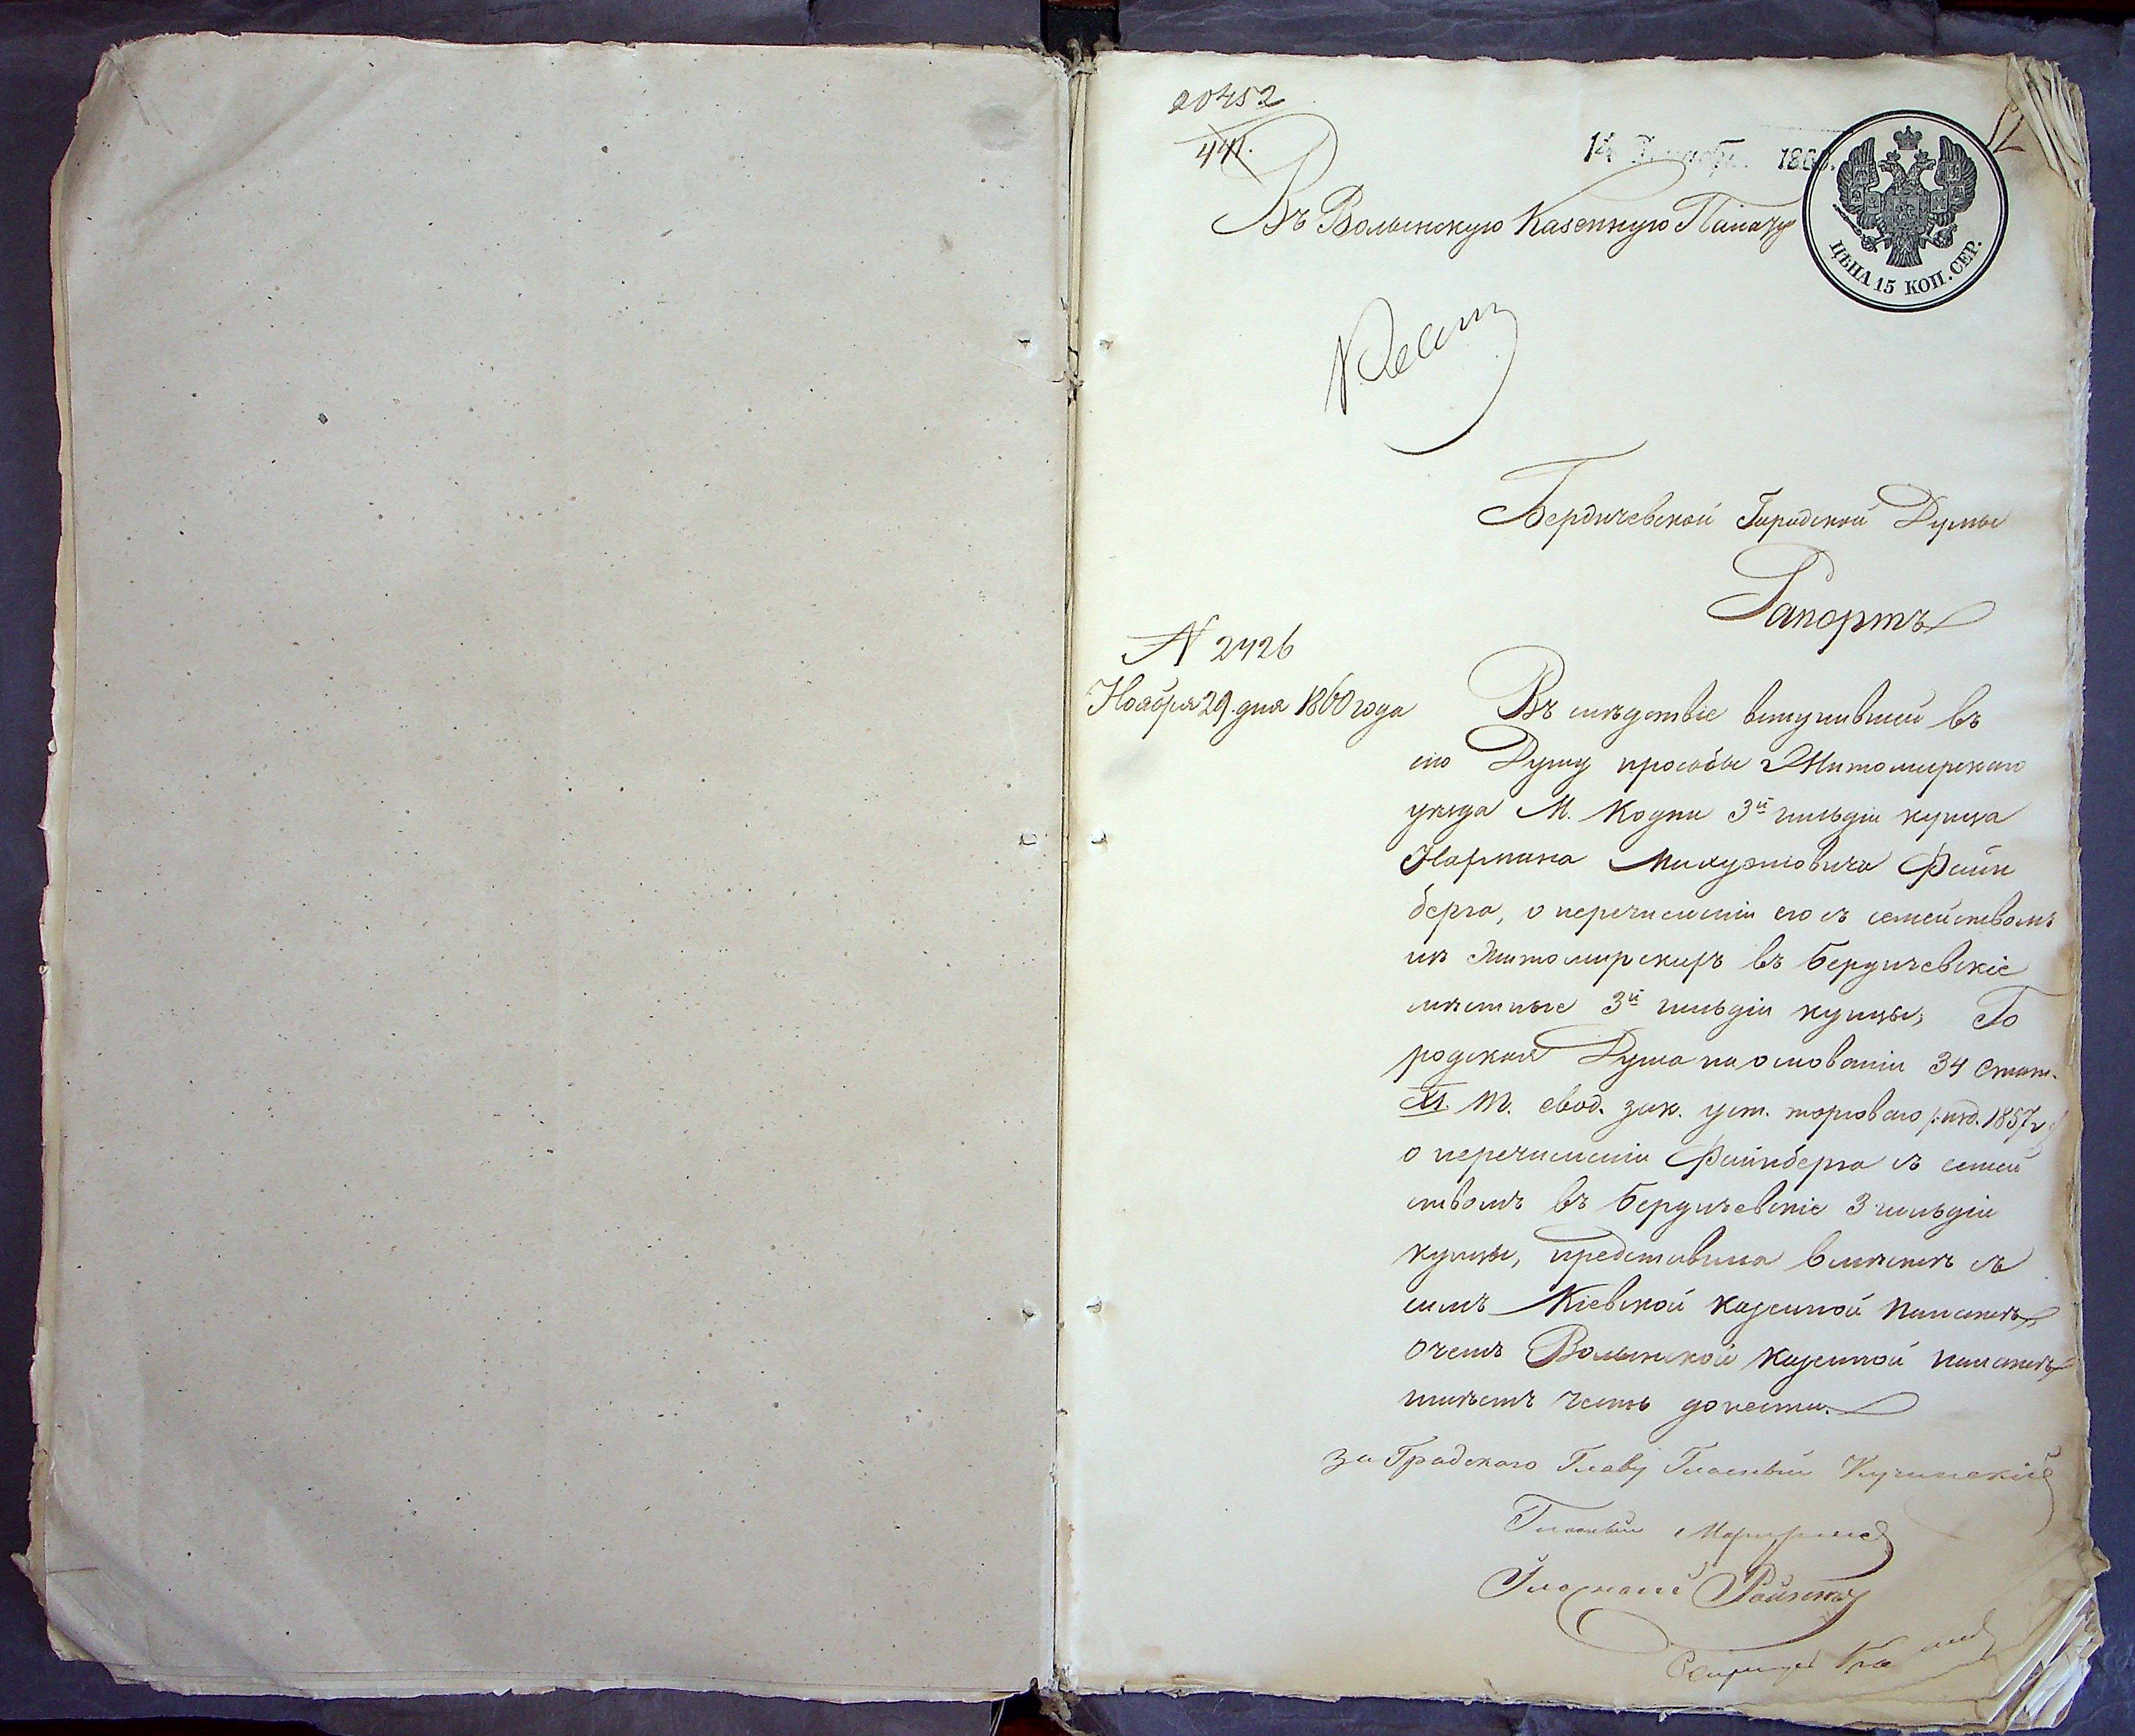 20452
441.
14 1860.
ЦѢНА 15 КОП. СЕР.
Въ Волынскую Казенную Палату
Бердичевской Городской Думы
Рапортъ
N 2426
Ноября 29 дня 1860 года
Въ слѣдствіе вступившей въ
сію Думу прозьбы Житомирскаго
уѣзда М. Кодни 3й гильдіи купца
Файн
берга, о перечисленіи его съ семействомъ
изъ Житомирскихъ въ Бердичевскіе
мѣстные 3й гильдіи купцы, Го
родская Дума на основаніи 34 стат.
XI. Т. свод. зак. уст. торговаго /: изд. 1857 г
о перечисленіи Файнберга съ семей
ствомъ въ Бердичевскіе 3 гильдіи
купцы, представила вмѣстѣ съ
симъ Кіевской казенной палатѣ,
о чемъ Волынской казенной палатѣ
имѣетъ честь донести.
за Градскаго Главу Гласный
Гласный
Гласный